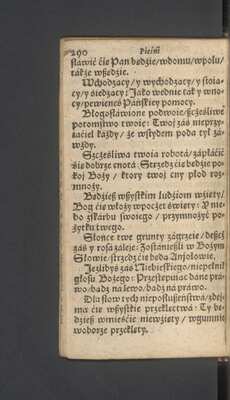 290 Pieśń
sławić ćie Pan będzie / w domu / w polu /
także wszędzie.
Wchodzący / y wychodzący / y stoią-
cy / y siedzący: Jako we dnie tak y w no-
cy / pewieneś Páńskiey pomocy.
Błogosławione podwoie / szczęśliwe
potomstwo twoie: Twoy zaś nieprzy-
iaćiel każdy / ze wstydem poda tył zá-
wżdy.
Szczęśliwa twoia robotá / zápłáćić
sie dobrze cnotá: Strzedz ćie będzie po-
koy Boży / ktory twoy cny płod roz-
mnoży.
Będziesz wszystkim ludźiom wzięty /
Bog ćie włoży w poczet święty: Y nie-
bo z skárbu swoiego / przymnożyć po-
żytku twego.
Słońce twe grunty zágrzeie / deszcz
záś y rosa záleie: Zostánieszli w Bożym
Słowie / strzedz ćie będą Anjołowie.
Jeżlibyś záś Niebieskiego / niepełnił
głosu Bożego: Przestępuiąc dáne pra-
wo / bądź na lewo / bądź na prawo.
Dla słow tych nieposłuszeństwa / zdej-
mą ćie wszystkie przeklęctwá: Ty bę-
dziesz w mieście niewzięty / w gumnie
w oborze przeklęty.